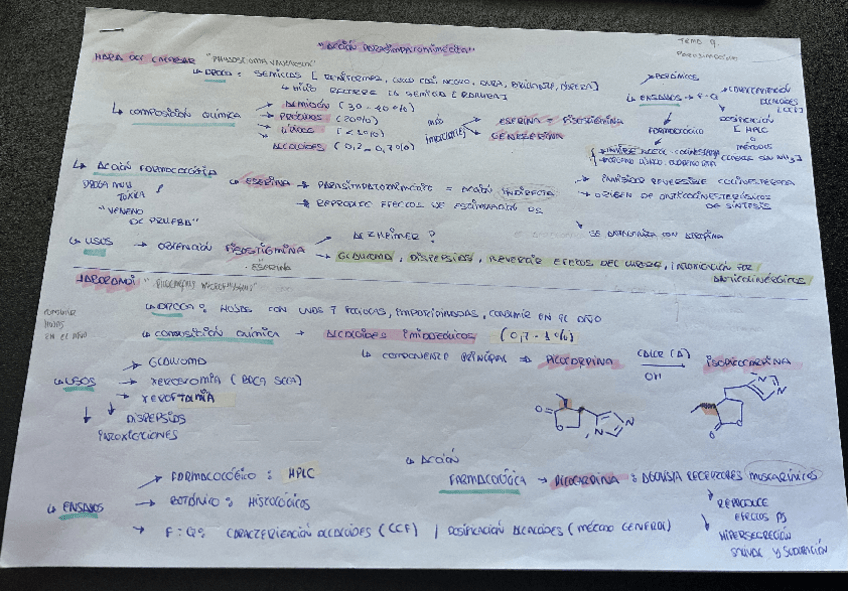 "ACCIÓN PARASIMPATICOMIMÉTICA"
TEMA 9.
HABA DEL CALABAR "PHYSOSTIGMA VENENOSUM"
↳ DROGA: SEMILLAS [RENIFORMES, NEGRO, DURA, BRILLANTE
↳ HILIO RECORRE LA SEMILLA
↳ COMPOSICIÓN QUÍMICA
→ ALMIDÓN (30-40%)
→ PROTEÍNAS (20%)
→ LÍPIDOS (<10%)
→ ALCALOIDES (0,2-0,7%)
MÁS IMPORTANTES
→ ESERINA = FISOSTIGMINA
→ GENESERINA
→ BOTÁNICOS
ENSAYOS → F-Q
→ CARACTERIZACIÓN ALCALOIDES [CCF]
DOSIFICACIÓN [HPLC
FARMACOLÓGICO
↳ ACCIÓN FARMACOLÓGICA
DROGA MUY TÓXICA!
"VENENO DE PRUEBA"
↳ ESERINA → PARASIMPATICOMIMÉTICO = ACCIÓN INDIRECTA
→ REPRODUCE EFECTOS DE ESTIMULACIÓN
→ INHIBIDOR REVERSIBLE COLINESTERASA
→ ORIGEN DE ANTICOLINESTERÁSICOS DE SÍNTESIS
SE ANTAGONIZA CON ATROPINA
↳ USOS → OBTENCIÓN FISOSTIGMINA
· ESERINA
→ ALZHEIMER?
→ GLAUCOMA, DISPEPSIAS, REVERTIR EFECTOS DEL CURARE, INTOXICACIÓN POR ANTICOLINÉRGICOS
JABORANDI "PILOCARPUS MICROPHYLLUS"
↳ DROGA: HOJAS CON UNOS 7 FOLIOLOS, IMPARIPINNADAS, CONSUMIR EN EL AÑO
CONSUMIR HOJAS EN EL AÑO
↳ COMPOSICIÓN QUÍMICA → ALCALOIDES IMIDAZÓLICOS (0,7-1%)
↳ COMPONENTE PRINCIPAL ⇒ PILOCARPINA CALOR (Δ) OH ISOPILOCARPINA
↳ USOS
→ GLAUCOMA
→ XEROSTOMÍA (BOCA SECA)
→ XEROFTALMIA
DISPEPSIAS
INTOXICACIONES
↳ ACCIÓN FARMACOLÓGICA → PILOCARPINA: AGONISTA RECEPTORES MUSCARÍNICOS
REPRODUCE EFECTOS PS
HIPERSECRECIÓN SALIVAL Y SUDORACIÓN
↳ ENSAYOS
→ FARMACOLÓGICO: HPLC
→ BOTÁNICO: HISTOLÓGICOS
→ F:Q: CARACTERIZACIÓN ALCALOIDES (CCF) / DOSIFICACIÓN ALCALOIDES (MÉTODO GENERAL)